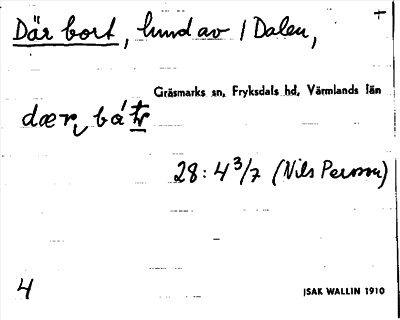 Där bort, hund av / Dalen, +
Gräsmarks sn, Fryksdals hd, Värmlands län
dær, bá tr
28:4 3/7 (Nils Persson)
4
ISAK WALLIN 1910